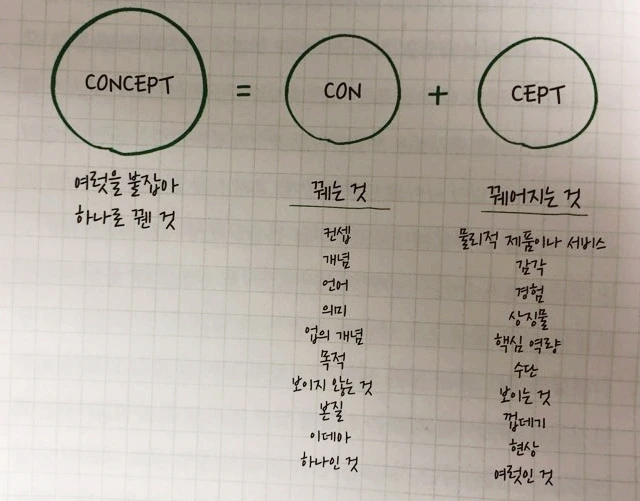 CONCEPT = CON + CEPT
여럿을 붙잡아
하나로 꿴 것
꿰는 것
컨셉
개념
언어
의미
업의 개념
목적
보이지 않는 것
본질
이데아
하나인 것
꿰어지는 것
물리적 제품이나 서비스
감각
경험
상징물
핵심 역량
수단
보이는 것
껍데기
현상
여럿인 것